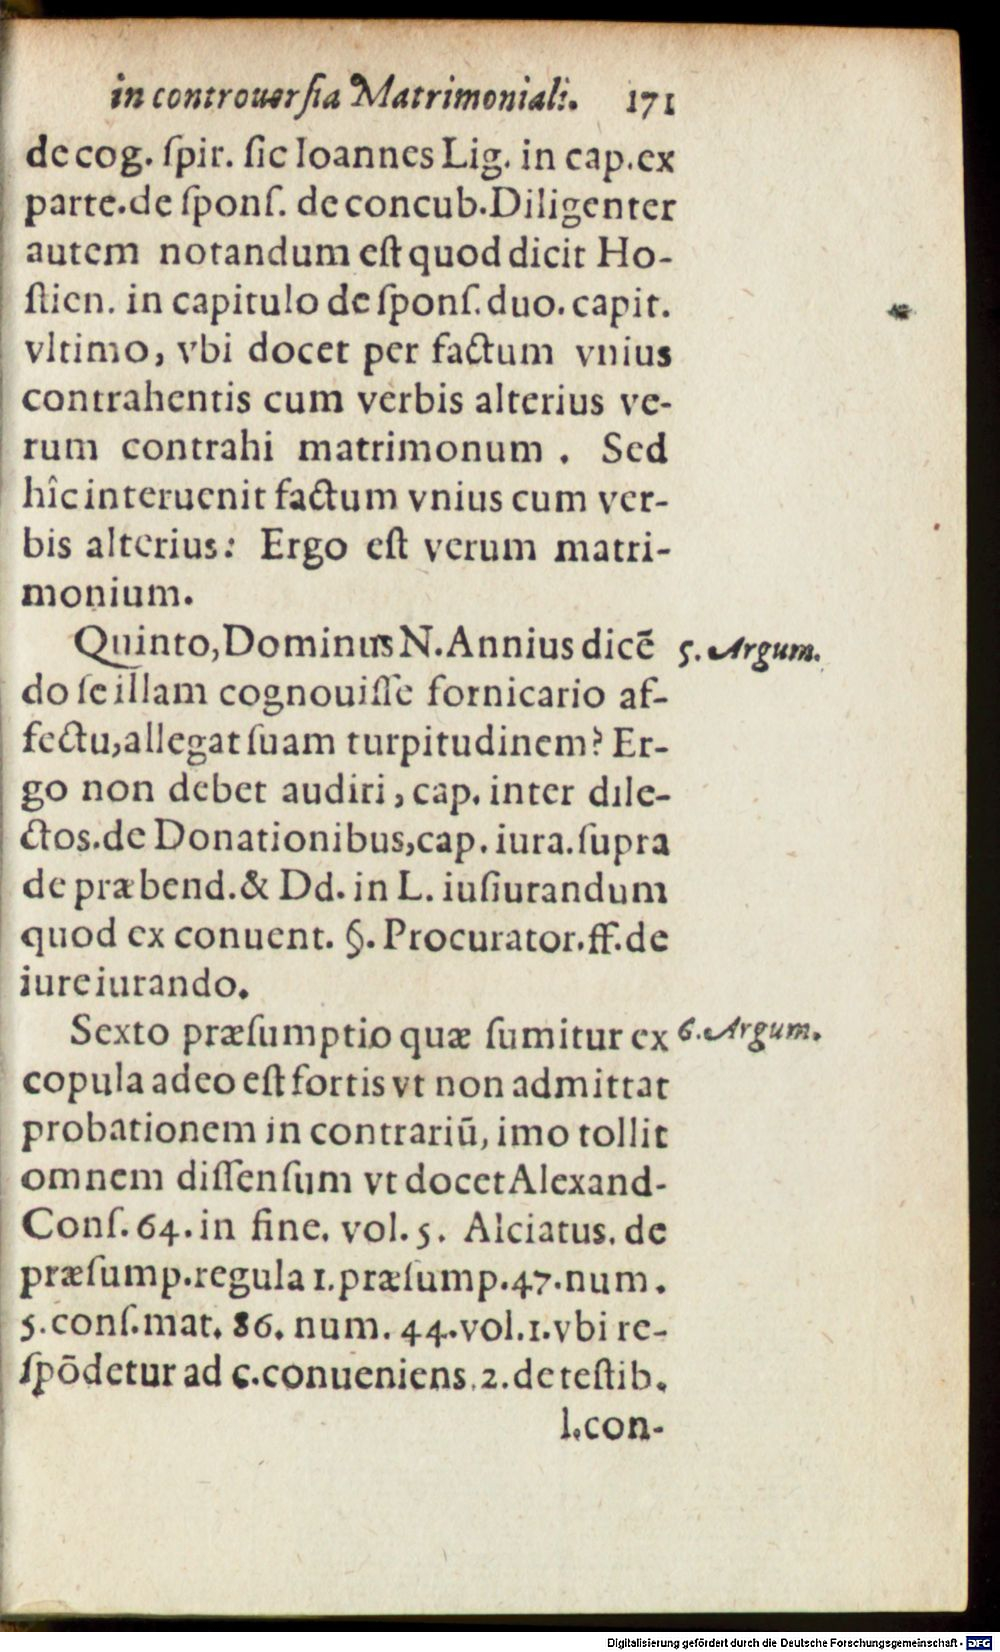 in controuersia Matrimoniali. 171
de cog. ſpir. ſic Ioannes Lig. in cap. ex
parte. de ſponſ. de concub. Diligenter
autem notandum eſt quod dicit Ho-
ſtien. in capitulo de ſponſ. duo. capit.
vltimo, vbi docet per factum vnius
contrahentis cum verbis alterius ve-
rum contrahi matrimonum . Sed
hîc interuenit factum vnius cum ver-
bis alterius: Ergo eſt verum matri-
monium.
Quinto, Dominus N. Annius dicē 5. Argum.
do ſe illam cognouiſſe fornicario af-
fectu, allegat ſuam turpitudinem? Er-
go non debet audiri, cap. inter dile-
ctos. de Donationibus, cap. iura. ſupra
de præbend. & Dd. in L. iuſiurandum
quod ex conuent. §. Procurator. ff. de
iureiurando.
Sexto præſumptio quæ ſumitur ex 6. Argum.
copula adeo eſt fortis vt non admittat
probationem in contrariū, imo tollit
omnem diſſenſum vt docet Alexand-
Conſ. 64. in fine. vol. 5. Alciatus. de
præſump. regula 1. præſump. 47. num.
5. conſ. mat. 86. num. 44. vol. 1. vbi re-
ſpōdetur ad c. conueniens. 2. de teſtib.
l. con-
Digitalisierung gefördert durch die Deutsche Forschungsgemeinschaft - DFG